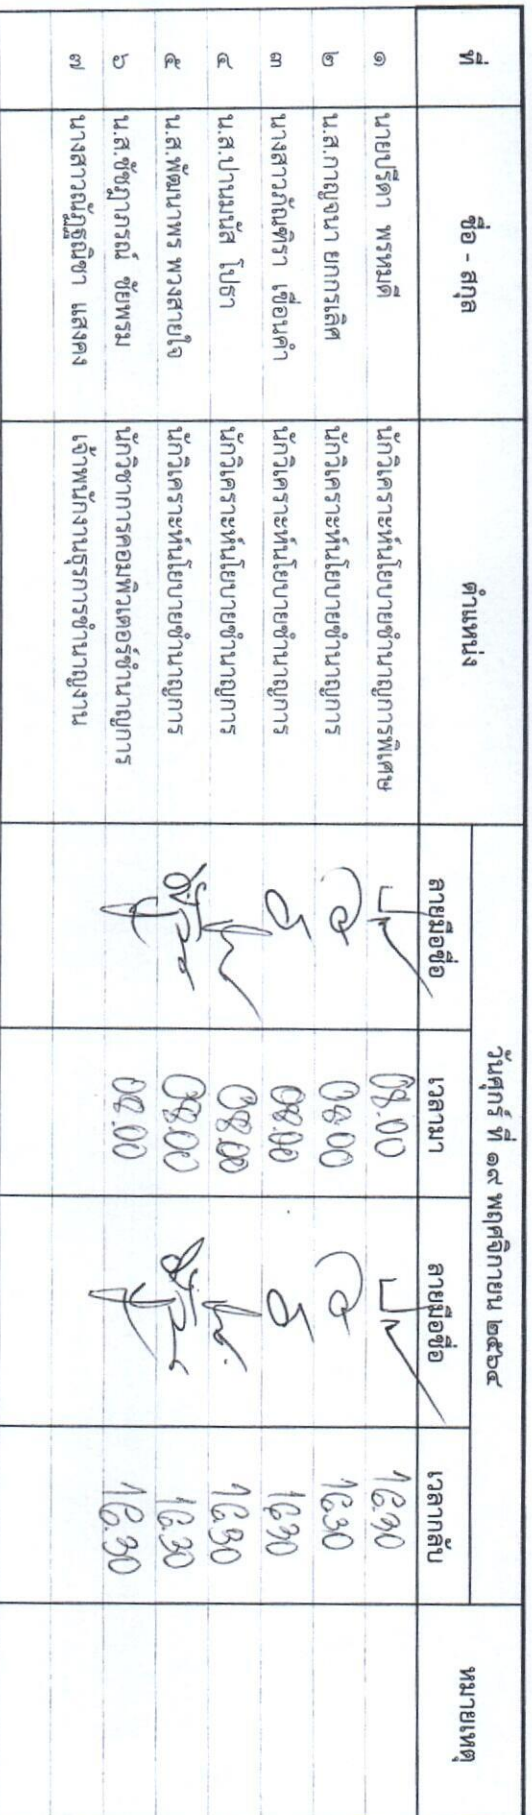 วันศุกร์ ที่ ๑๙ พฤศจิกายน ๒๕๖๔
ที่ ชื่อ - สกุล ตำแหน่ง ลายมือชื่อ เวลามา ลายมือชื่อ เวลากลับ หมายเหตุ
๑ นายปรีดา พรหมดี นักวิเคราะห์นโยบายชำนาญการพิเศษ 08.00 16.30
๒ น.ส.กาญจนา ยกกรเลิศ นักวิเคราะห์นโยบายชำนาญการ 08.00 16.30
๓ นางสาวภัณฑิรา เขื่อนคำ นักวิเคราะห์นโยบายชำนาญการ 08.00 16.30
๔ น.ส.ปานมนัส โปธา นักวิเคราะห์นโยบายชำนาญการ 08.00 16.30
๕ น.ส.พัฒนาพร พวงสายใจ นักวิเคราะห์นโยบายชำนาญการ 08.00 16.30
๖ น.ส.ชัชฎาภรณ์ ชัยพรม นักวิชาการคอมพิวเตอร์ชำนาญการ 08.00 16.30
๗ นางสาวณัฏฐณิชา แสงคง เจ้าพนักงานธุรการชำนาญงาน